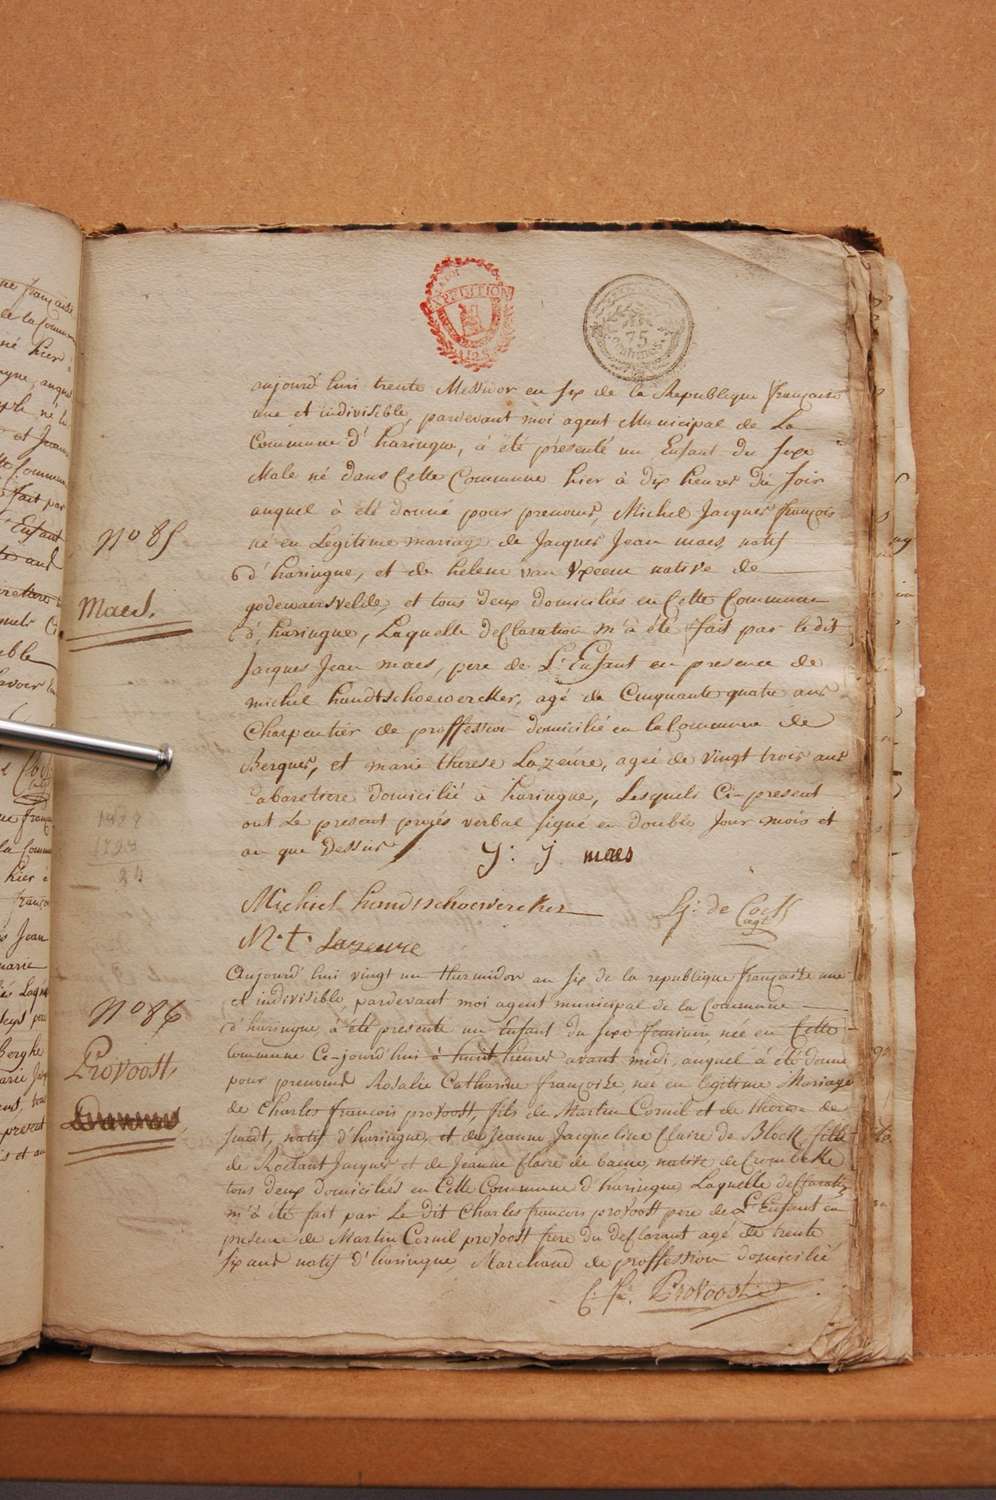 EXPEDITION
75
Centimes
aujourd'hui trente Messidor en six de la Republique française
une et indivisible, pardevant moi agent Municipal de La
Commune d'haringue, à été présenté un Enfant du sexe
Male né dans Cette Commune hier à dix heures du soir
auquel à été donné pour prenoms, Michel Jacques françois
né en Legitime mariage de Jacques Jean maes, natif
d'haringue, et de helene van native de
godewaersvelde, et tous deux domiciliés en Cette Commune
d'haringue, Laquelle declaration m'a été fait par le dit
Jacques Jean maes, pere de L'Enfant en presence de
michel handtschoewercker, agé de Cinquante quatre ans
Charpentier de proffession domicilié en la Commune de
Bergues, et marie therese Lazeure, agée de vingt trois ans
Cabaretiere domicilié à haringue, Lesquels Ci-present
ont Le present procès verbal signé en double Jour mois et
an que dessus J: J maes
No 85
Maes.
Michiel handtschoewercker de Cock
agt
M. t. Lazeure
Aujourd'hui vingt un thermidor an six de la republique française une
et indivisible pardevant moi agent municipal de la Commune
d'haringue à été presenté un Enfant du sexe feminin, née en Cette
Commune Ce-jourd'hui à huit heures avant midi, auquel à été donné
pour prenoms Rosalie Catharine françoise, née en legitime Mariage
de Charles françois provoost, fils de Martin Cornil et de therese de
smedt, natif d'haringue, et de Jeanne Jacqueline Claire de Block, fille
de Roelant Jacques et de Jeanne Claire de native de Crombeke
tous deux domiciliés en Cette Commune d'haringue Laquelle declaration
m'à été fait par Le Dit Charles francois provoost pere de L'Enfant en
presence de Martin Cornil provoost frere du declarant agé de trente
six ans natif d'haringue Marchand de proffession domicilié
No 86
Provoost,
C. f. Provoost